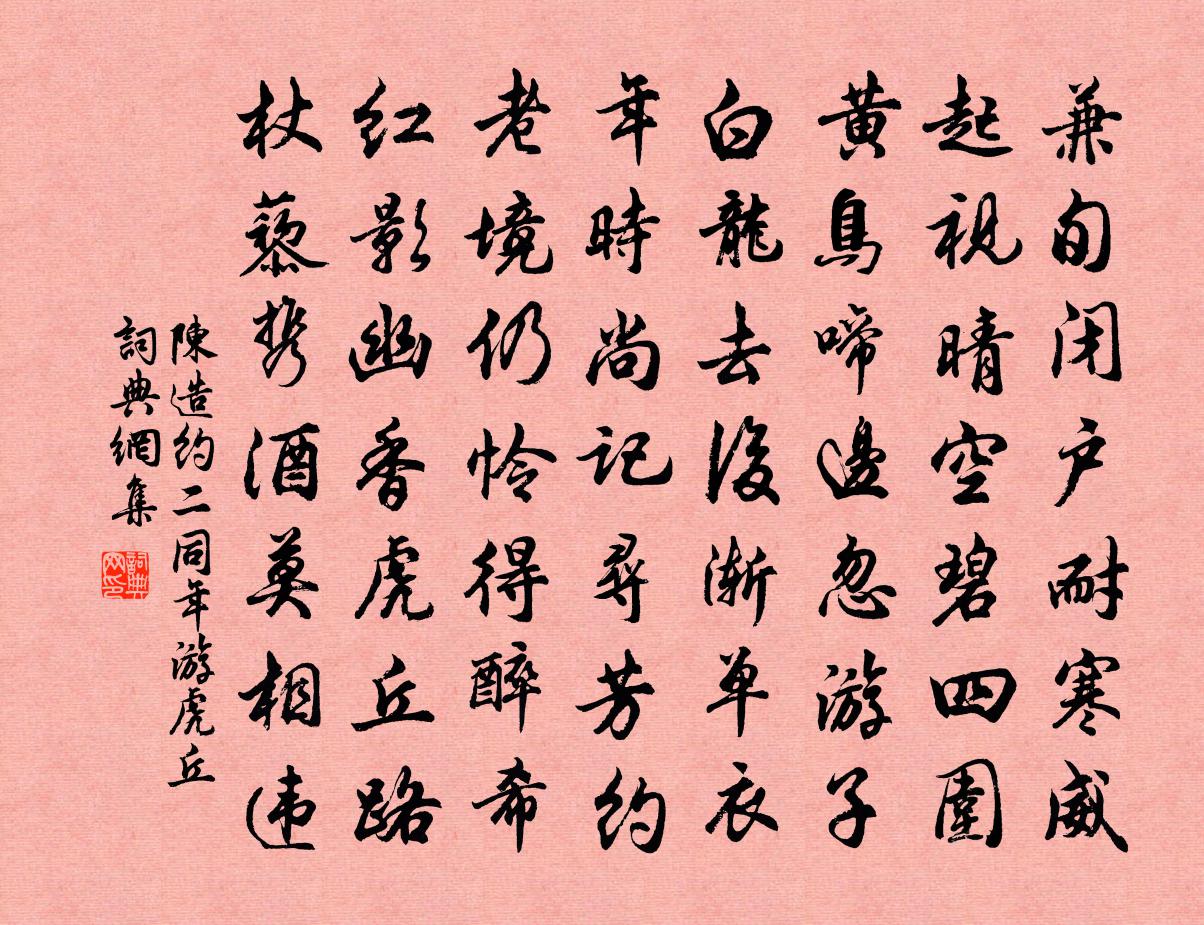 兼旬闭户耐寒威
起视晴空碧四圍
黄鳥啼邊忽游子
白龍去後漸单衣
年時尚记尋芳约
老境仍怜得醉希
红影幽香虎丘路
杖藜携酒莫相违
陳造约二同年游虎丘
詞典網集
詞典
网印